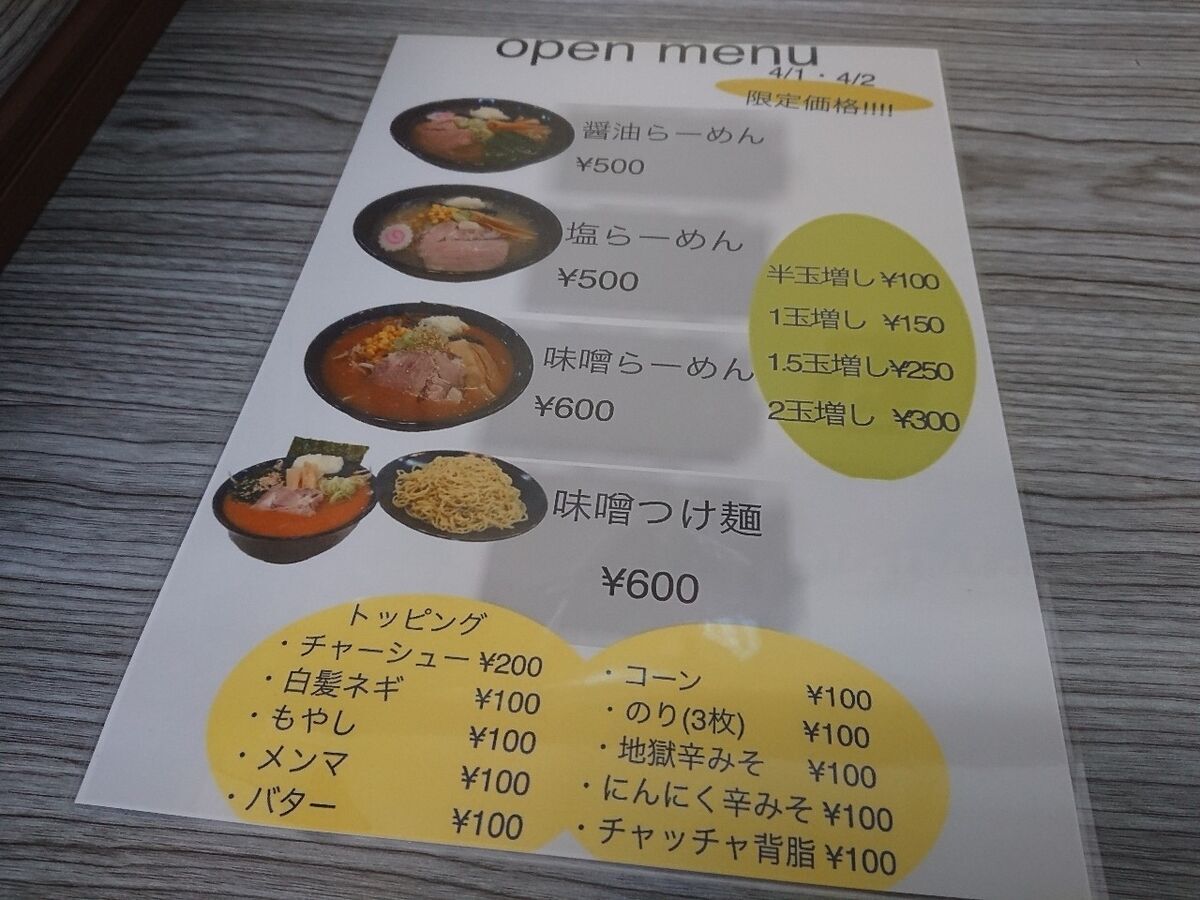 open menu
4/1・4/2
限定価格!!!!
醤油らーめん
¥500
塩らーめん
¥500
味噌らーめん
¥600
味噌つけ麺
¥600
半玉増し ¥100
1玉増し ¥150
1.5玉増し ¥250
2玉増し ¥300
トッピング
・チャーシュー ¥200
・白髪ネギ ¥100
・もやし ¥100
・メンマ ¥100
・バター ¥100
・コーン ¥100
・のり(3枚) ¥100
・地獄辛みそ ¥100
・にんにく辛みそ ¥100
・チャッチャ背脂 ¥100